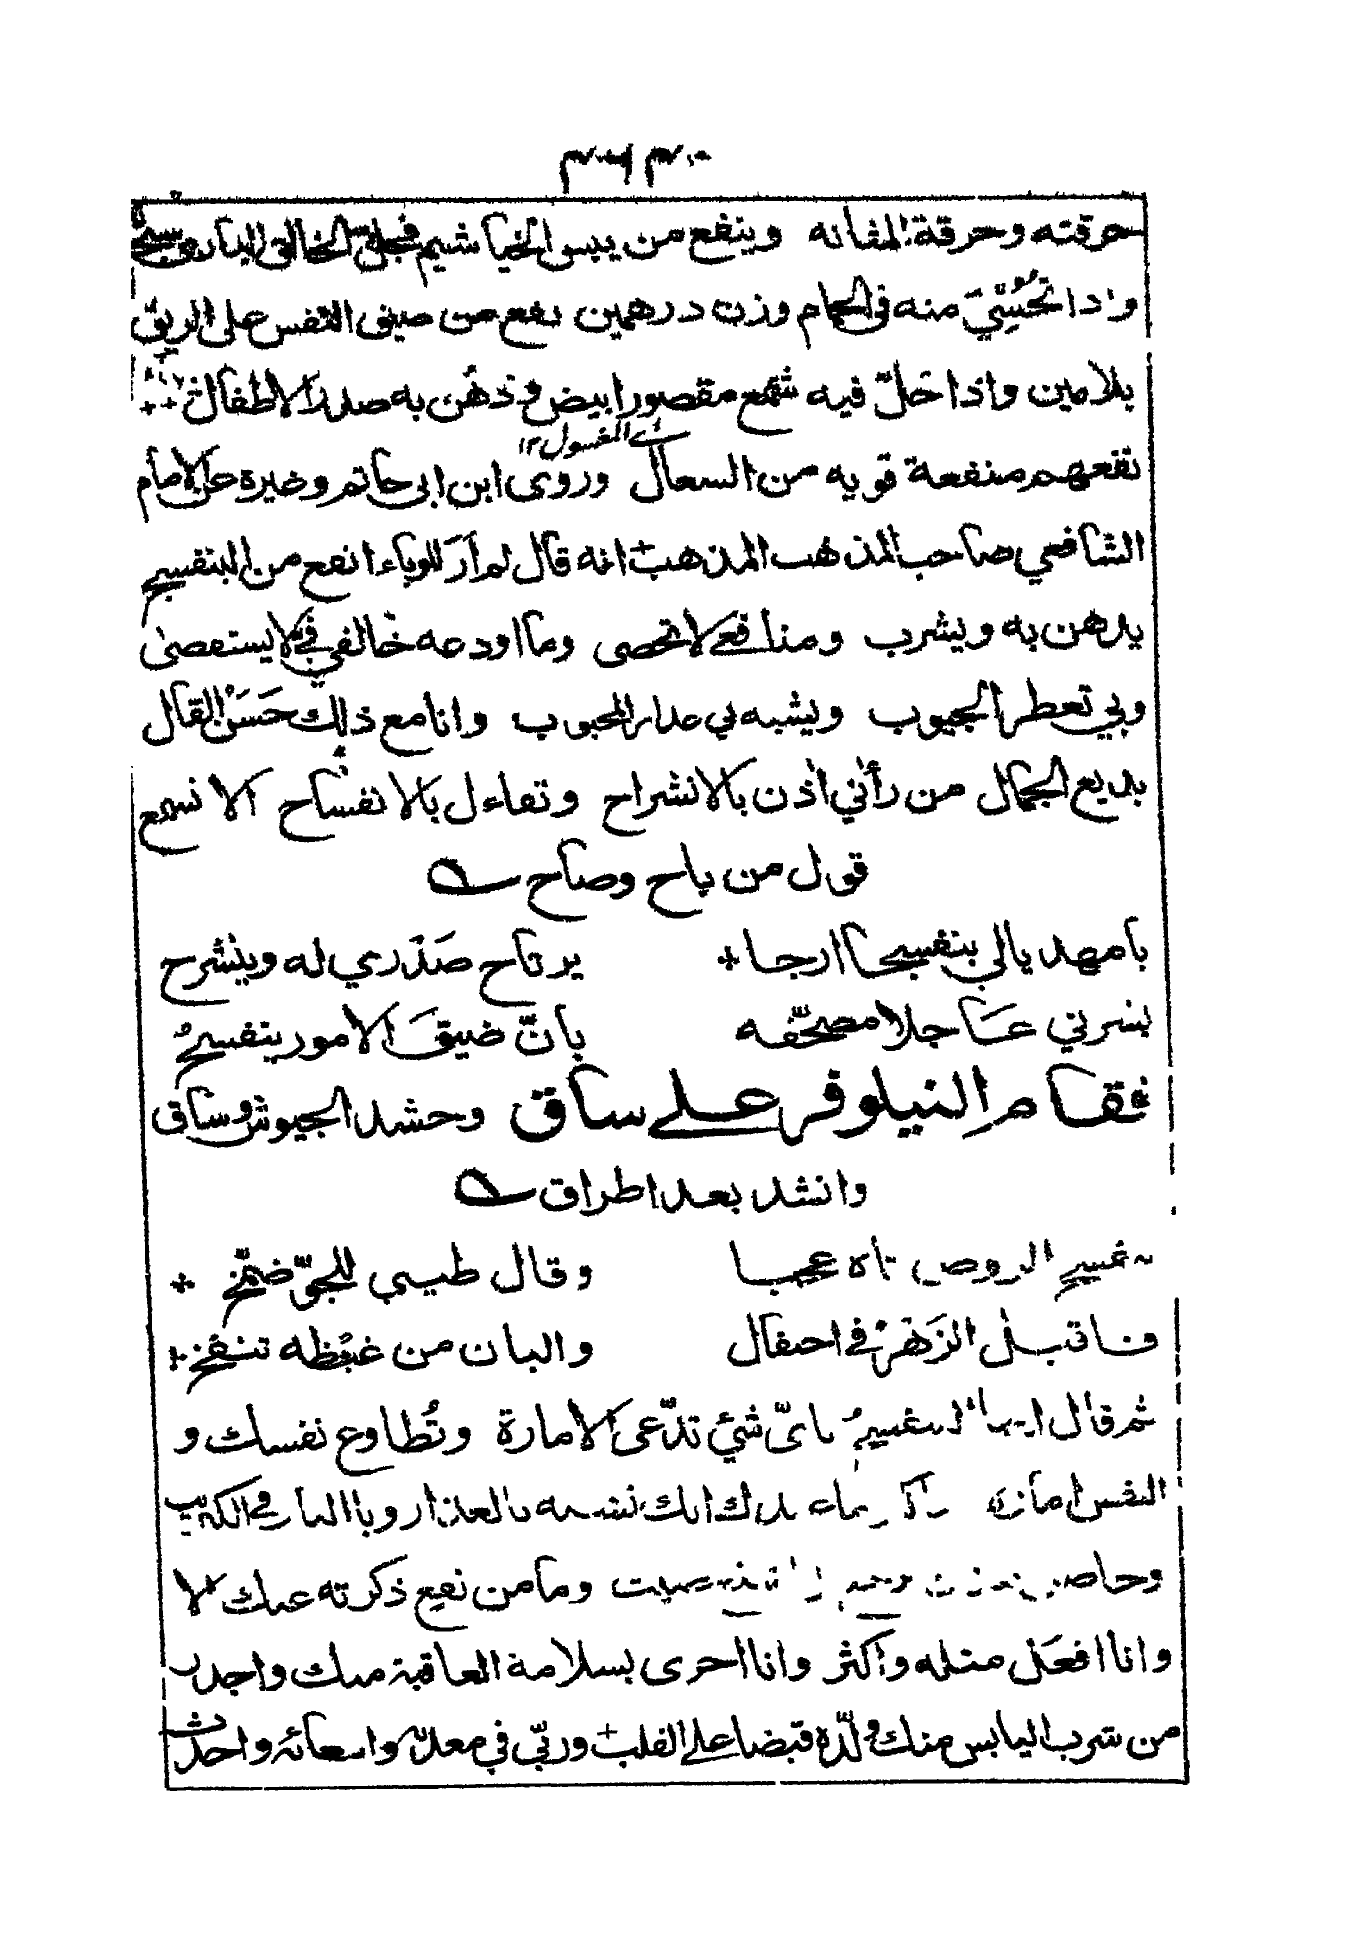 حرقته وحرقة المثانه وينفع من يبس الخياشيم فجل الخالق البارى
واذا تُحُسِّيَ منه فى الحمام وزن درهمين نفع من ضيق النفس على الريق
بلامين واذا حُلّ فيه شمع مقصور ابيض ودُهن به صدر الاطفال
اے المغسول ١٢
نفعهم منفعة قويه من السعال وروى ابن ابى حاتم وغيره عن الامام
الشافعي صاحب المذهب المذهب انه قال لم اَرَ للوباء انفع من البنفسج
يدهن به ويشرب ومنافعي لا تحصى وما اودعه خالقي فيّ لا يستقصىٰ
وبي تعطر الجيوب ويشبه بي عذار المحبوب وانا مع ذلك حَسَن الفال
بديع الجمال من رأني اذن بالانشراح وتفاءل بالانفساح الا تسمع
قول من باح وصاح
يا مهديا لي بنفسجا ارجا يرتاح صَدري له وينشرح
بشرني عاجلا مصحّفه بانّ ضيقَ الامور ينفسحُ
فقام النيلوفر علے ساق وحشد الجيوش وساق
وانشد بعد اطراق
بنفسج الروض تاه عجبا وقال طيبي للجوّ ضمّخ
فاقبل الزَهرُ في احتفال والبان من غيظه تنفّخ
ثم قال ايها البنفسج باىّ شئ تدّعى الامارة وتُطاوع نفسك و
النفس امارة
وما من نفع ذكرته عنك الا
وانا افعَل مثله واكثر وانا احرى بسلامة العاقبة منك واجدر
من شرب اليابس منك ولّد قبضا علے القلب وربّى في معدته وامعائه واحدث